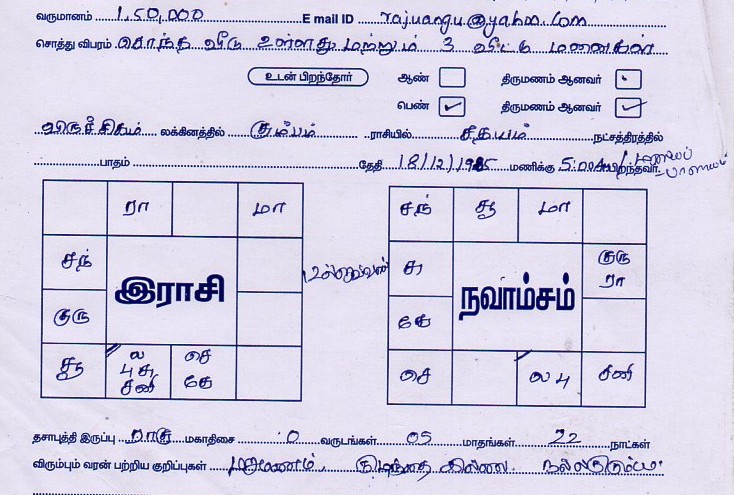 வருமானம் 1,50,000 E mail ID rajuangu@yahoo.com
சொத்து விபரம் சொந்த வீடு உள்ளது மற்றும் 3 வீட்டு மனைகள்
உடன் பிறந்தோர் ஆண் திருமணம் ஆனவர்
பெண் திருமணம் ஆனவர்
விருச்சிகம் லக்கினத்தில் கும்பம் ராசியில் சதயம் நட்சத்திரத்தில்
பாதம் தேதி 18/12/1985 மணிக்கு 5:00 AM பிறந்தவர்
ரா மா
சந்
குரு
சூ
ல
பு சு
சனி
செ
கே
இராசி
சந் சூ மா
சு
குரு
ரா
கே
செ ல பு சனி
நவாம்சம்
தசாபுத்தி இருப்பு ராகு மகாதிசை 0 வருடங்கள் 05 மாதங்கள் 22 நாட்கள்
விரும்பும் வரன் பற்றிய குறிப்புகள் மறுமணம், குழந்தை இல்லை.